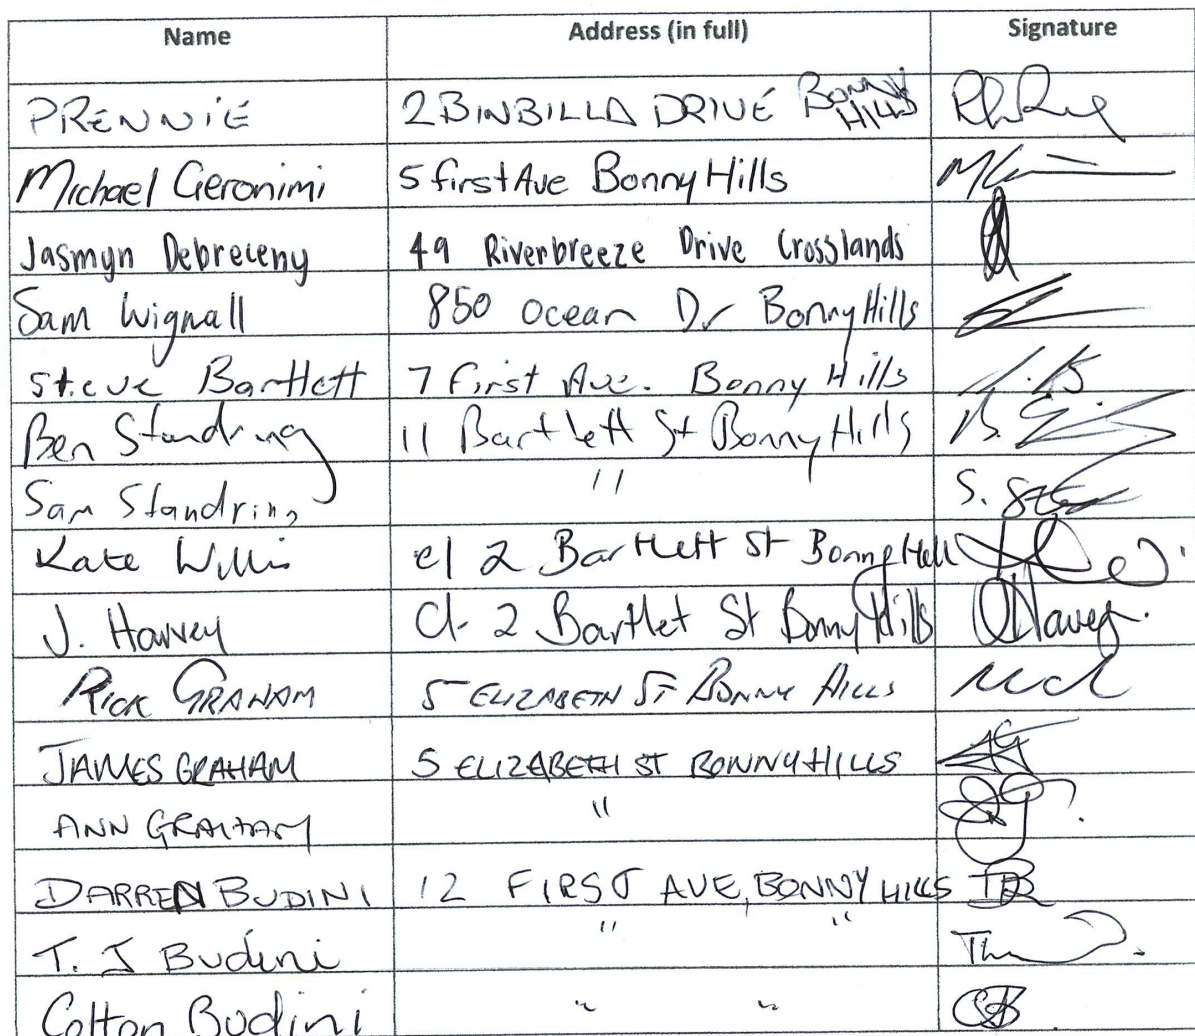 Name Address (in full) Signature
PRENNIE 2 BINBILLA DRIVE BONNY HILLS
Michael Geronimi 5 first Ave Bonny Hills
Jasmyn Debreceny 49 Riverbreeze Drive Crosslands
Sam Wignall 850 Ocean Dr Bonny Hills
Steve Bartlett 7 First Ave. Bonny Hills
Ben Standring 11 Bartlett St Bonny Hills
Sam Standring " S.
Kate Willis 2 Bartlett St Bonny Hill
J. Harvey 2 Bartlet St Bonny Hills
RICK GRAHAM 5 ELIZABETH ST BONNY HILLS
JAMES GRAHAM 5 ELIZABETH ST BONNY HILLS
ANN GRAHAM "
DARREN BUDINI 12 FIRST AVE, BONNY HILLS
T. J Budini " "
Colton Budini " "